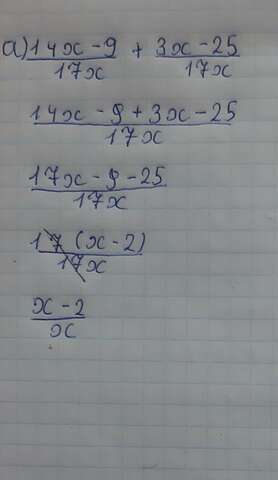 а) 14x - 9 / 17x + 3x - 25 / 17x
14x - 9 + 3x - 25 / 17x
17x - 9 - 25 / 17x
17 (x - 2) / 17x
x - 2 / x